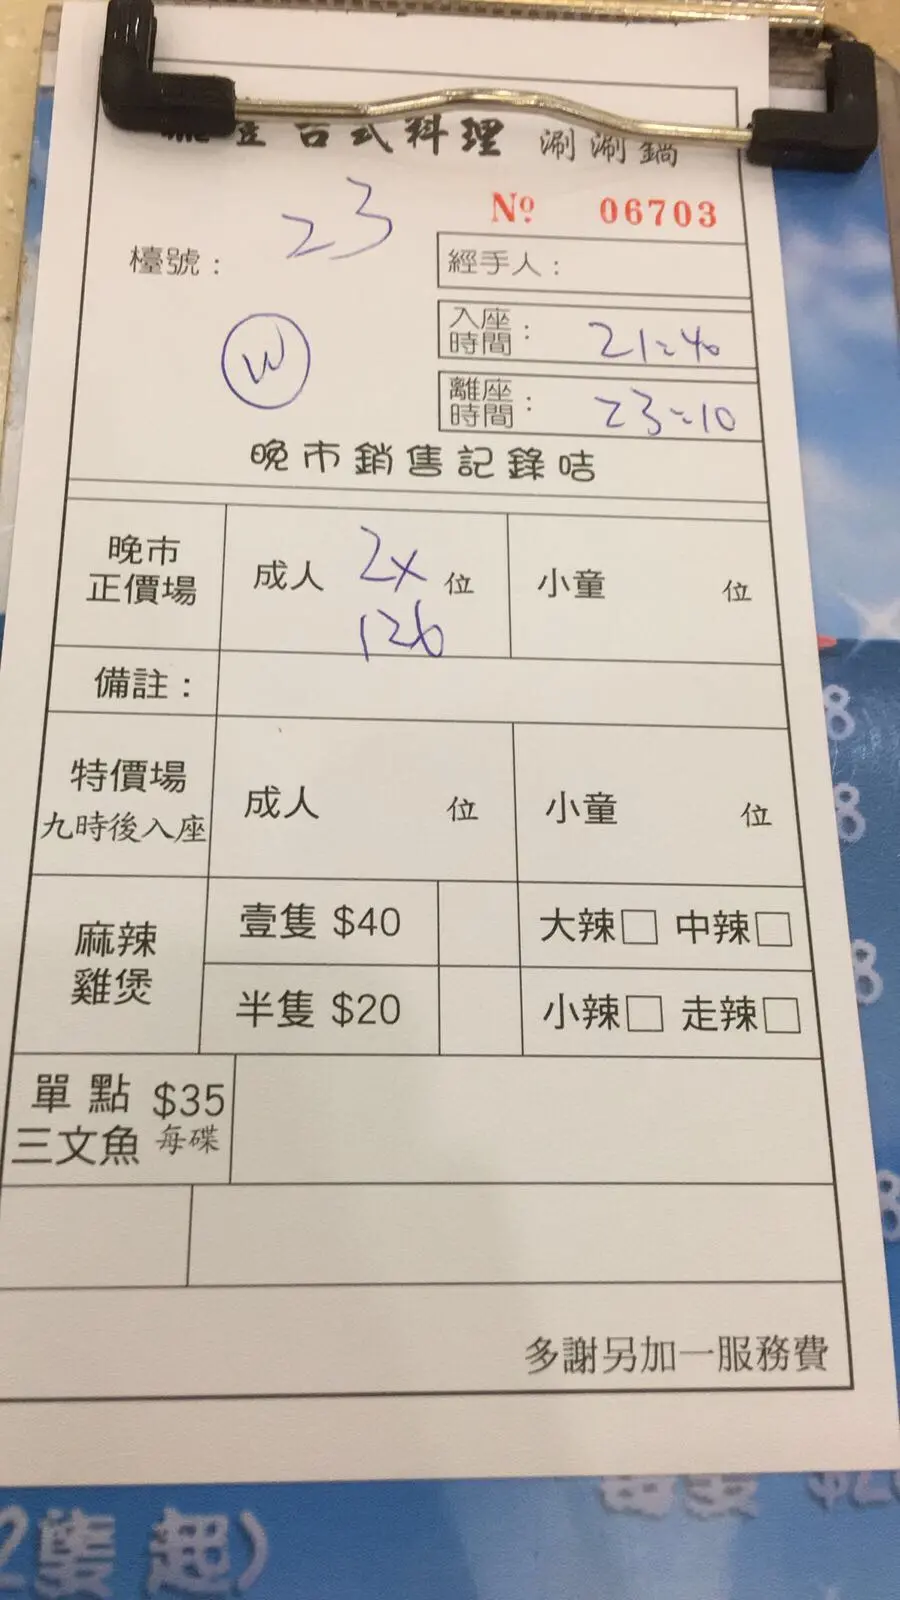 台式料理 涮涮鍋
Nº 06703
檯號： 23
經手人：
W
入座時間： 21:40
離座時間： 23:10
晚市銷售記錄咭
晚市正價場 成人 2x126 位 小童 位
備註：
特價場 九時後入座 成人 位 小童 位
麻辣雞煲
壹隻 $40 大辣□ 中辣□
半隻 $20 小辣□ 走辣□
單點 $35
三文魚 每碟
多謝另加一服務費
起）